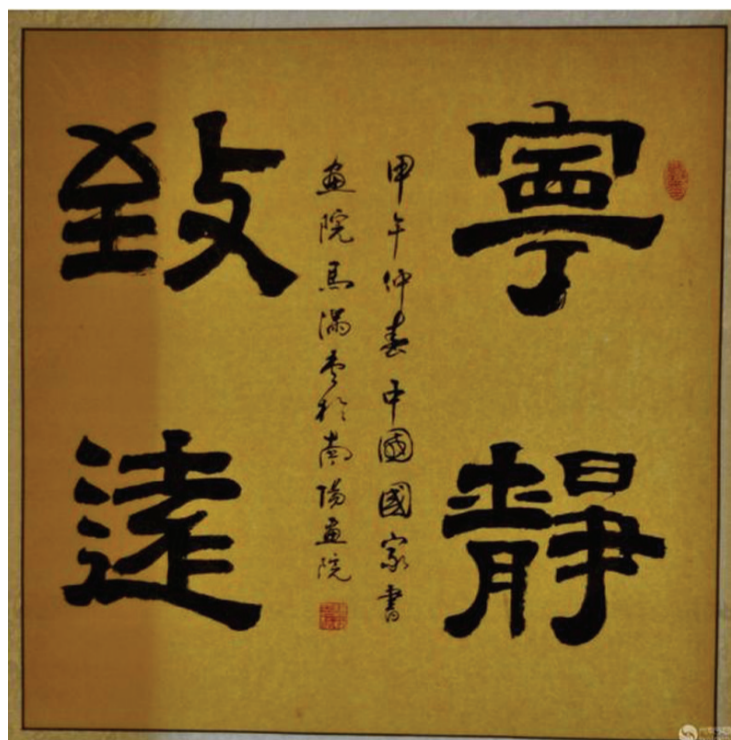 寧靜
致遠
甲午仲春中國國家書
畫院馬滿堂於南陽畫院